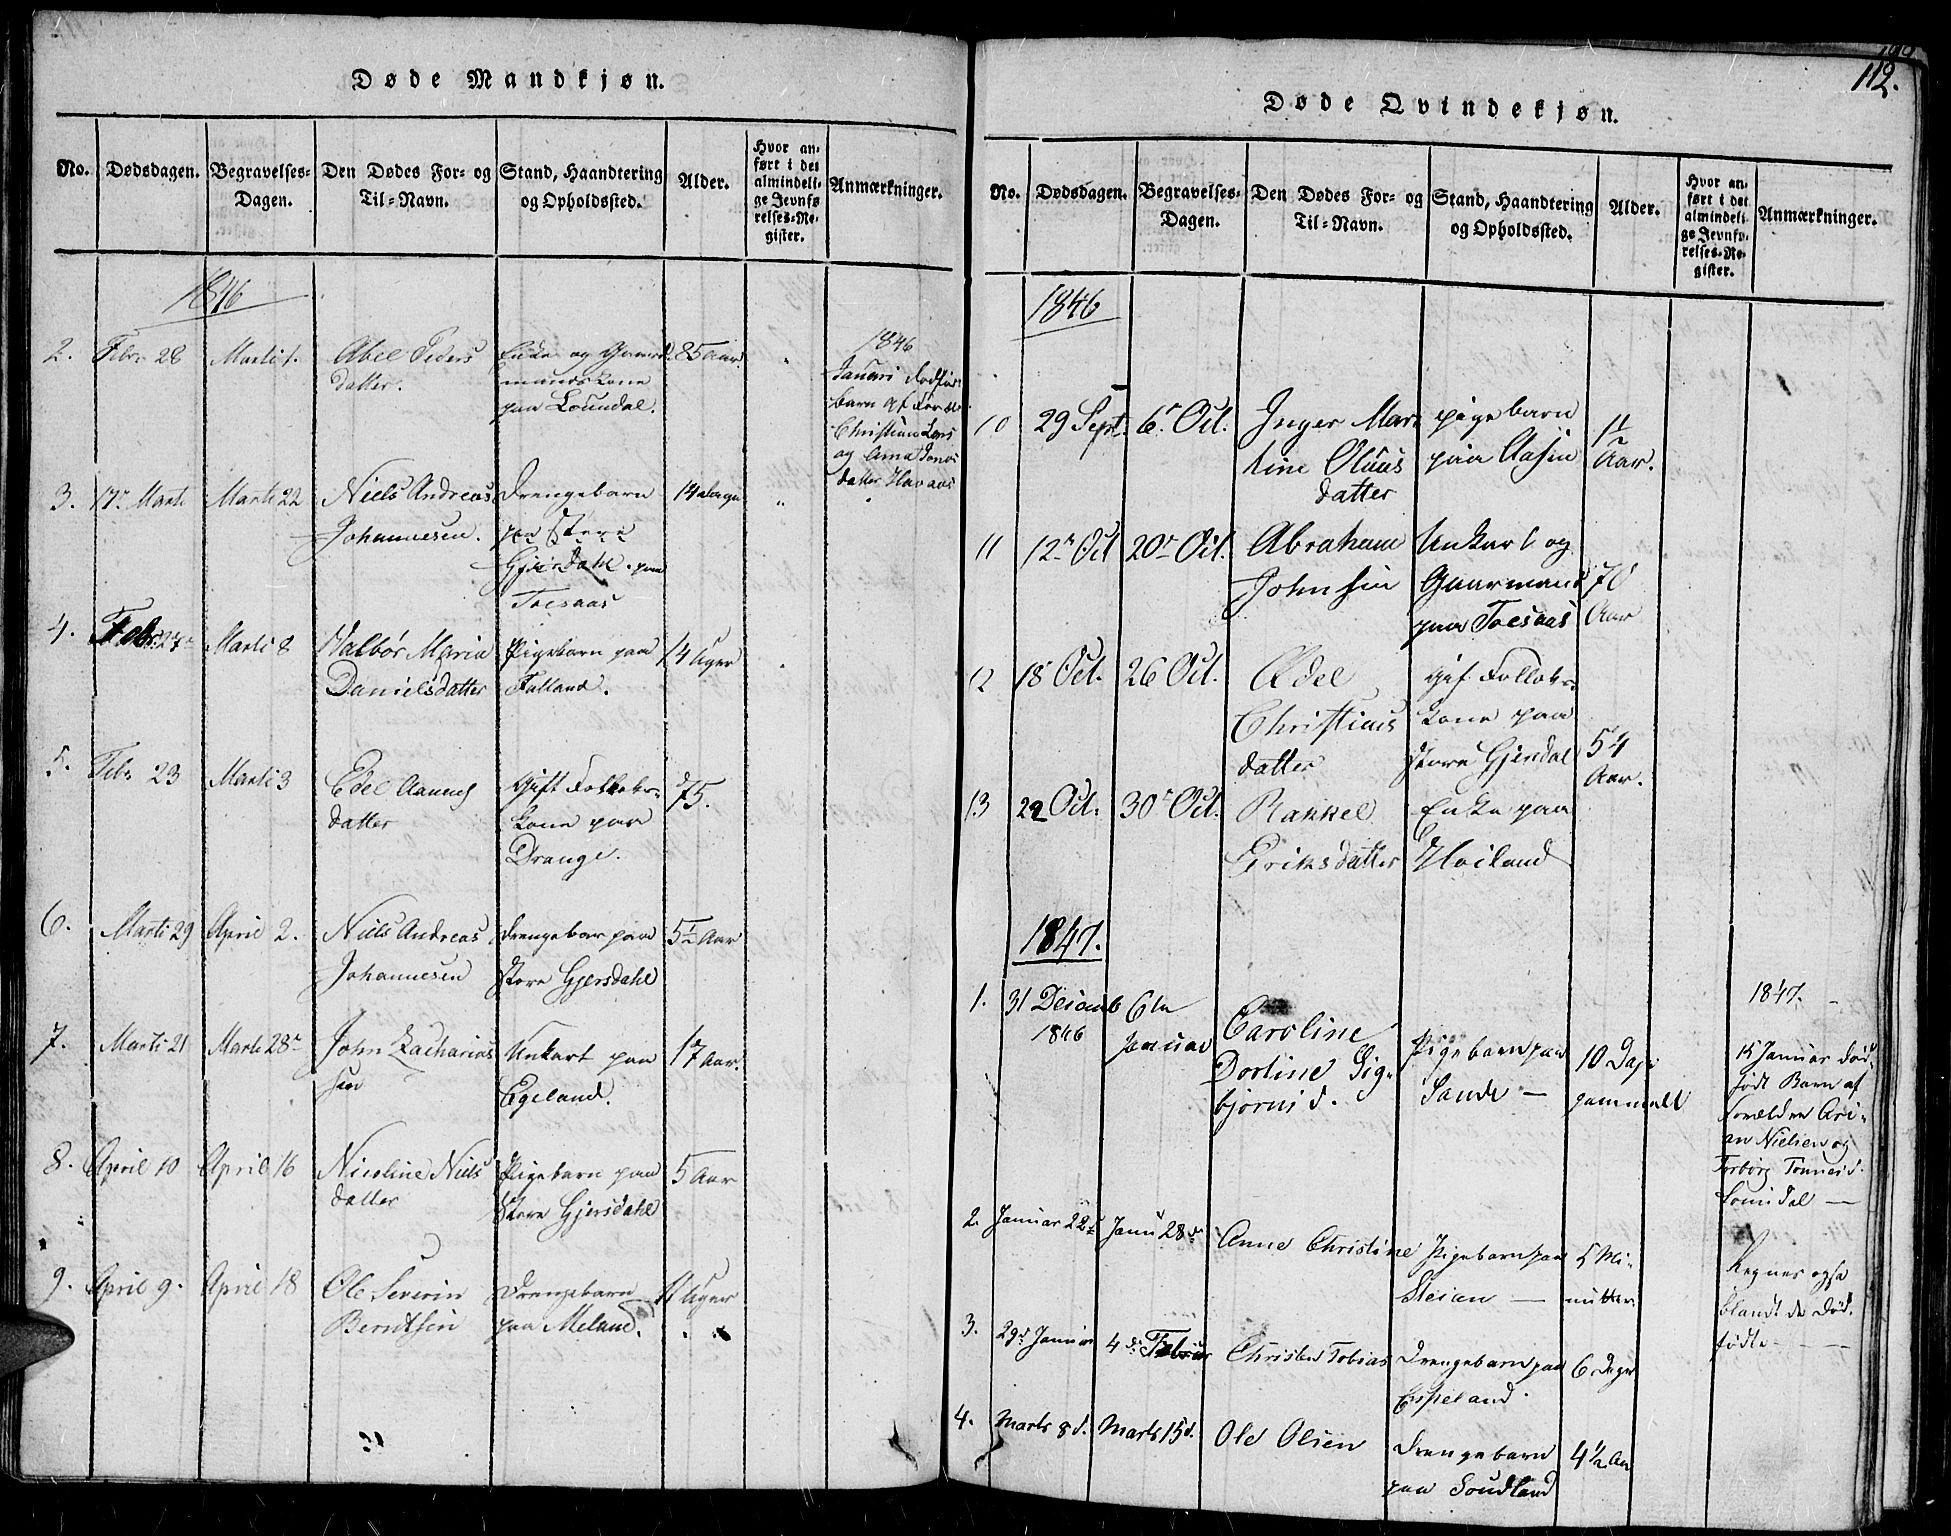 Døde Mandkjøn.
No. Dødsdagen. Begravelses-Dagen. Den Dødes For- og Til-Navn. Stand, Haandtering og Opholdssted. Alder. Hvor anført i det almindelige Jevnførelses-Register. Anmærkninger.
1846
2. Febr. 28 Marti 1. Abel Peders
datter.
Enke og Gaard
mands Kone
paa
85 Aar.
1846
Januari dødfødt
barn af Foræld.
Christian Lars
og Anna Jonas
datter Havaas
3. 17. Marti Marti 22 Niels Andreas
Johannesen.
Drengebarn
paa Store
Gjersdahl. paa
Toesaas
14 dage
4. Febr. 27 Marti 8 Valbør Maria
Danielsdatter
Pigebarn paa
Falland.
14 Uger
5. Febr. 23 Marti 3 Edel Aanens
datter
Gift Folloks-
kone paa
Drange.
75.
6. Marti 29 April 2. Niels Andreas
Johannesen
Drengebar paa
Store Gjersdahl
5½ Aar
7. Marti 21 Marti 28 John Zacharias
sen
Unkart paa
Egeland.
17 Aar.
8. April 10 April 16 Nicoline Niels
datter
Pigebarn paa
Store Gjersdahl
5 Aar
9. April 9. April 18 Ole Severin
Berntsen
Drengebarn
paa Meland.
11 Uger
112.
Døde Qvindekjøn.
No. Dødsdagen. Begravelses-Dagen. Den Dødes For- og Til-Navn. Stand, Haandtering og Opholdssted. Alder. Hvor anført i det almindelige Jevnførelses-Register. Anmærkninger.
1846
10 29 Sept. 6. Oct. Inger Mar
tine Oluus
datter
pigebarn
paa Aasen
1½
Aar.
11 12 Oct 20 Oct. Abraham
Johnsen
Unkart og
Gaarmand
paa Toesaas
70
Aar
12 18 Oct. 26 Oct. Edel
Christians
datter
gift Folloks-
kone paa
Store Gjersdal
54
Aar.
13 22 Oct. 30 Oct. Rakkel
Eriksdatter
Enke paa
Høiland
1847.
1. 31 Decemb
1846
6te
Januar
Caroline
Dortine Sig-
bjørns d.
Pigebarn paa
Sande —
10 Dage
gammelt
1847.
15 Januar død
født Barn af
Forældre Ari-
an Nielsen og
Torborg Tønnes d.
—
2. Januar 22 Janu 28 Anne Christine Pigebarn paa
Steian —
5 Mi-
nutter
Regnes ogsaa
blandt de død
fødte —
3. 29 Januar 4 Februar Christen Tobias Drengebarn paa
Espeland.
6 Dage
4. Marts 8 d. Marts 15 d. Ole Olsen Drengebarn
paa Soudland
4½ Aar